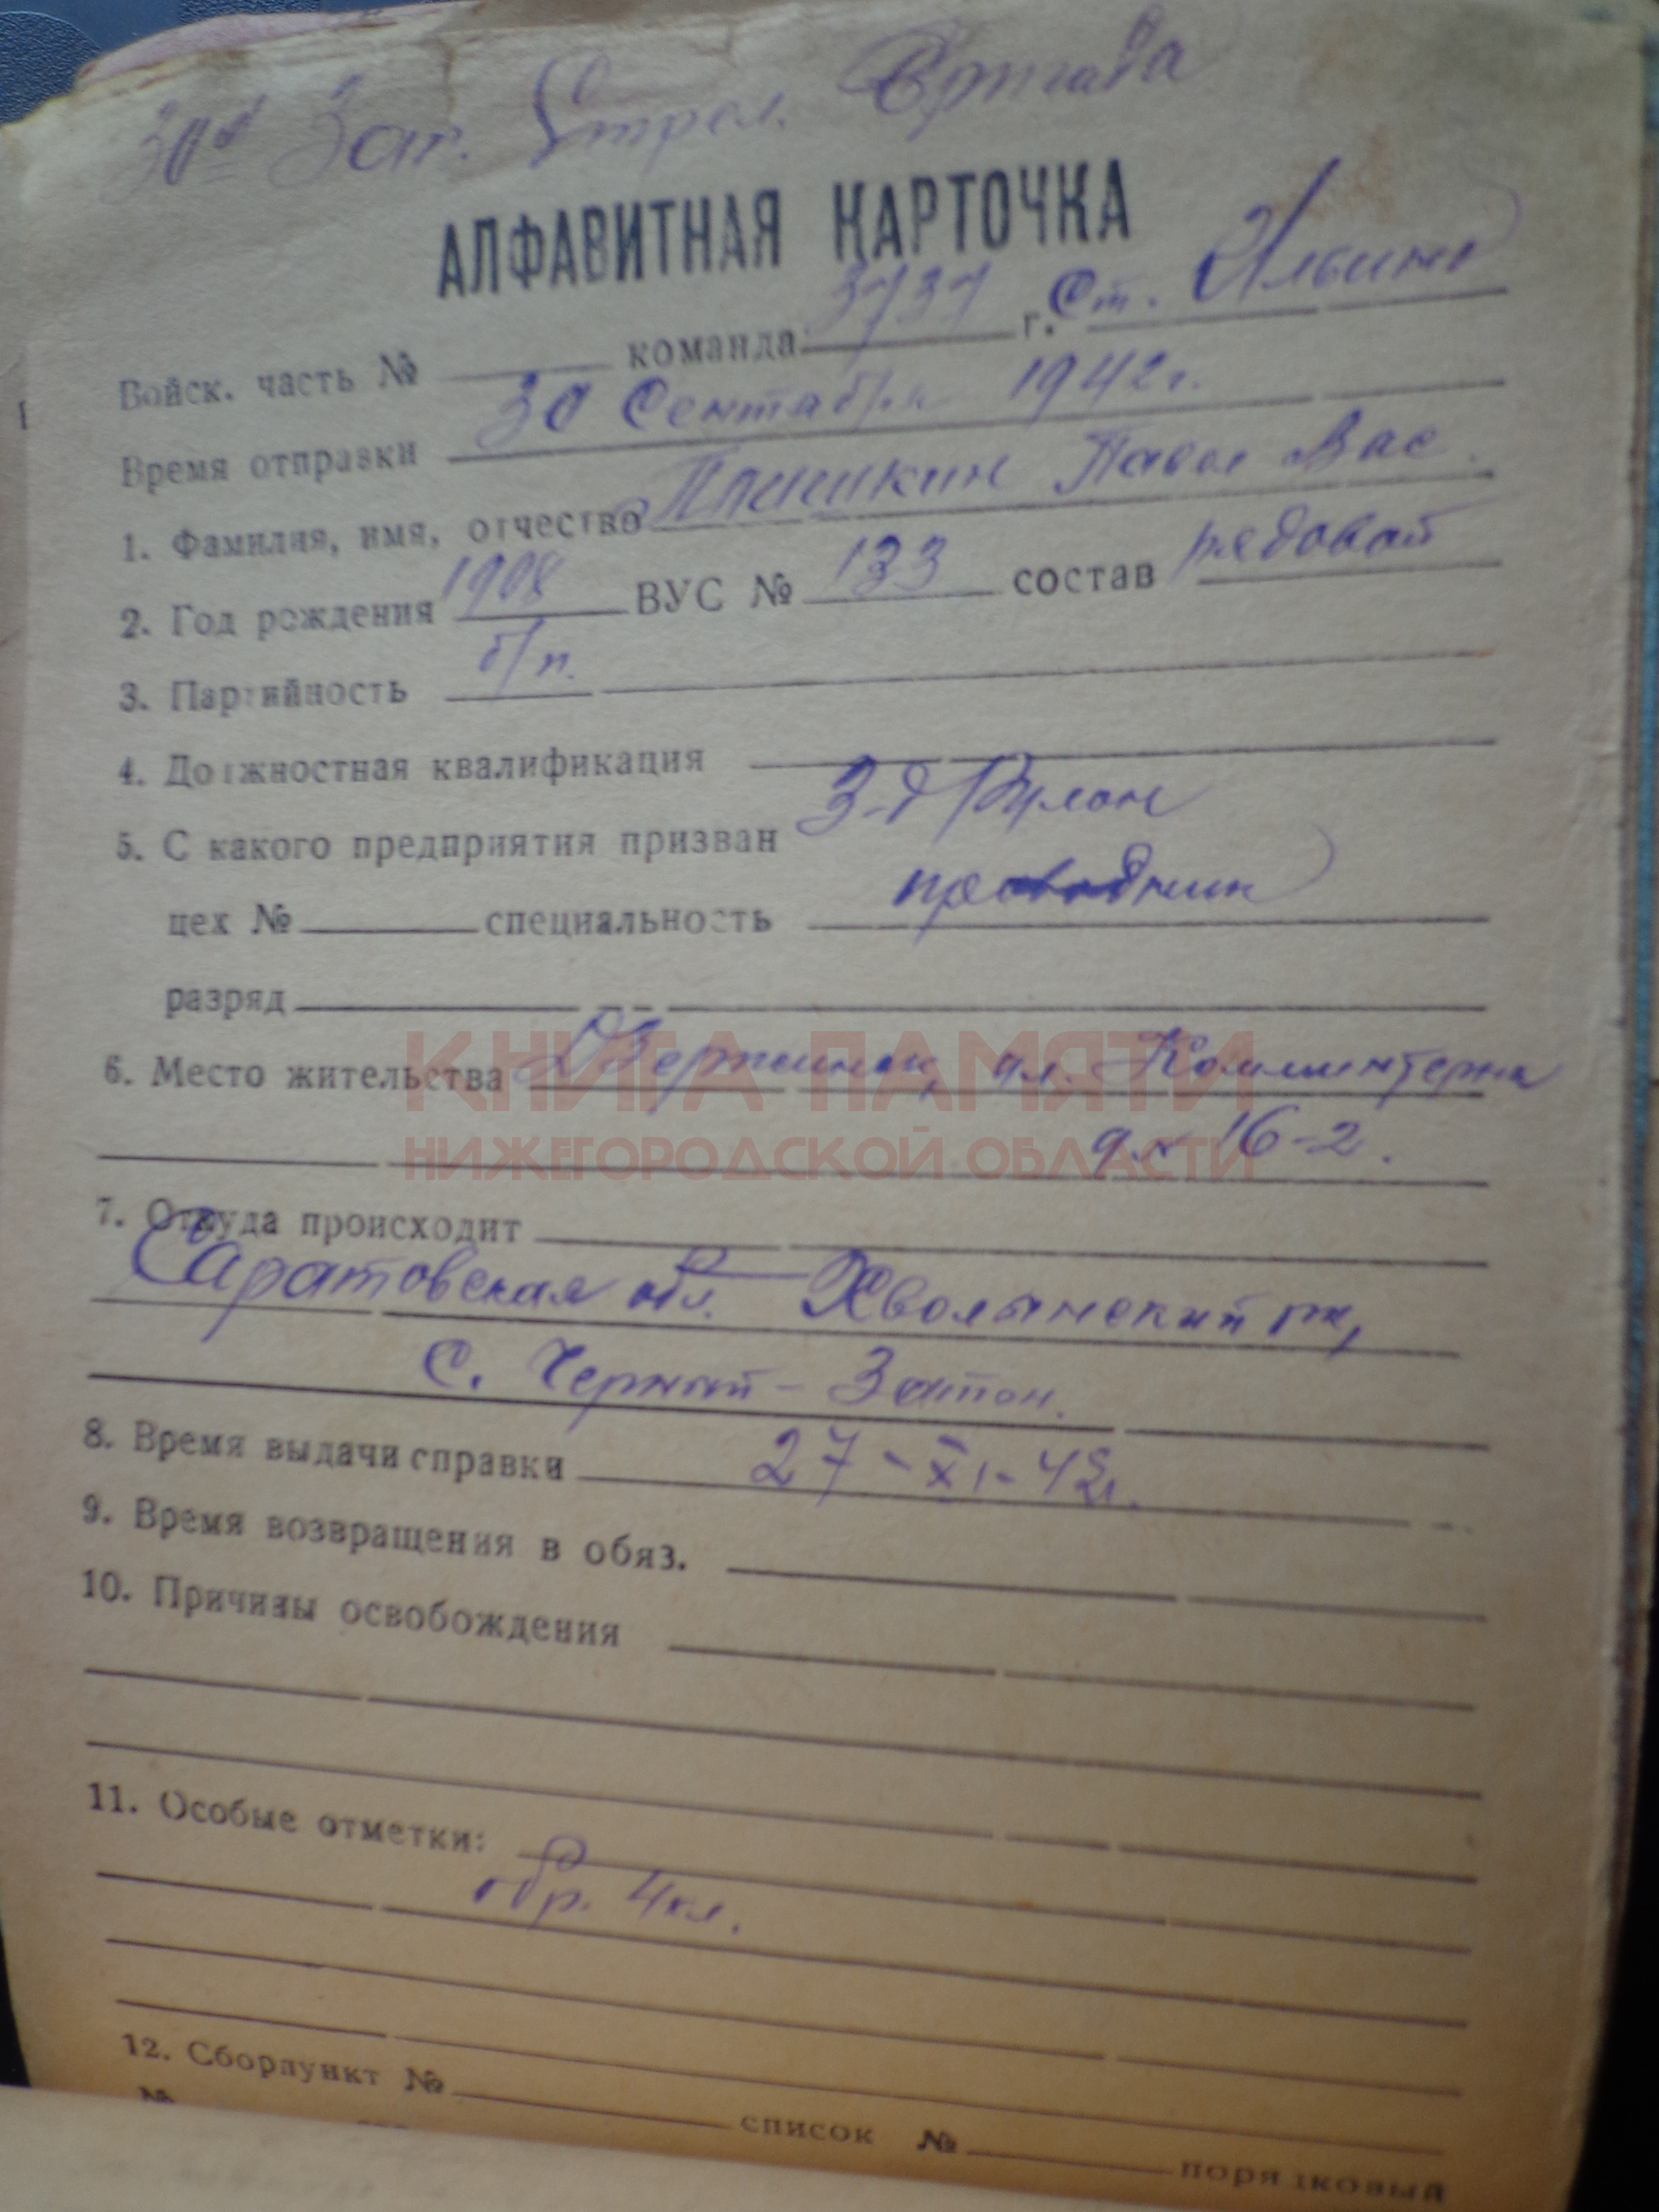 30я Зап. Стрел. Бригада
АЛФАВИТНАЯ КАРТОЧКА
Войск. часть № команда 3737 г. Ст. Ильино
Время отправки 30 Сентября 1942 г.
1. Фамилия, имя, отчество Павел Вас.
2. Год рождения 1908 ВУС № 133 состав рядовой
3. Партийность б/п.
4. Должностная квалификация
5. С какого предприятия призван З-д Рулон
цех № специальность проводник
разряд
6. Место жительства Дзержинск, ул. Коминтерна
КНИГА ПАМЯТИ
16-2.
НИЖЕГОРОДСКОЙ ОБЛАСТИ
7. Откуда происходит
Саратовская обл. Хвалынский
с. Черный-Затон.
8. Время выдачи справки 27-XI-42г.
9. Время возвращения в обяз.
10. Причины освобождения
11. Особые отметки:
обр. 4кл.
12. Сборпункт № список № порядковый
№